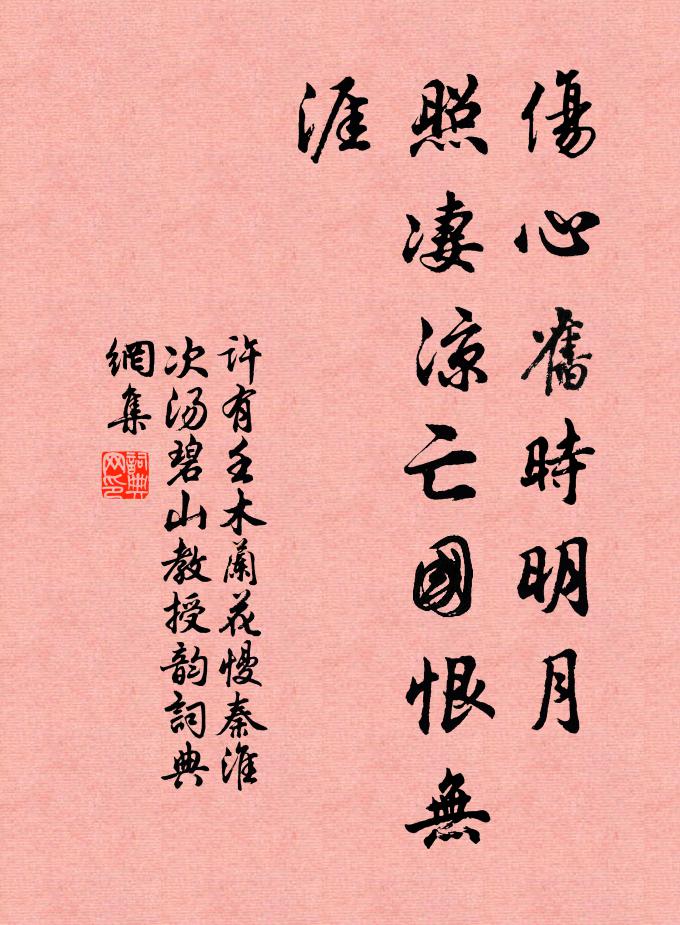 傷心舊時明月
照凄涼亡國恨無
涯
许有壬木蘭花慢秦淮
次汤碧山教授韵詞典
網集
詞典
网印